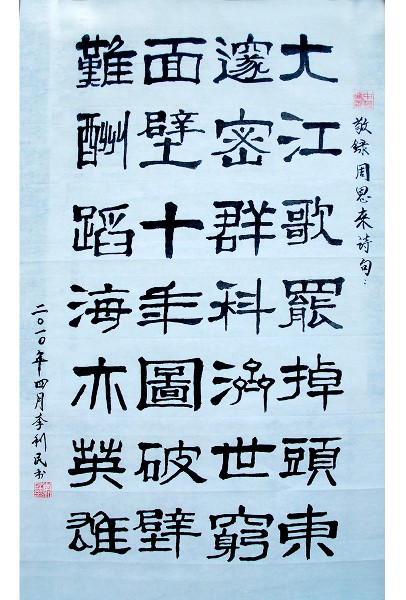 敬録周恩来诗句：
大江歌罷掉頭東
邃密群科濟世窮
面壁十年圖破壁
難酬蹈海亦英雄
二〇一〇年四月李利民书